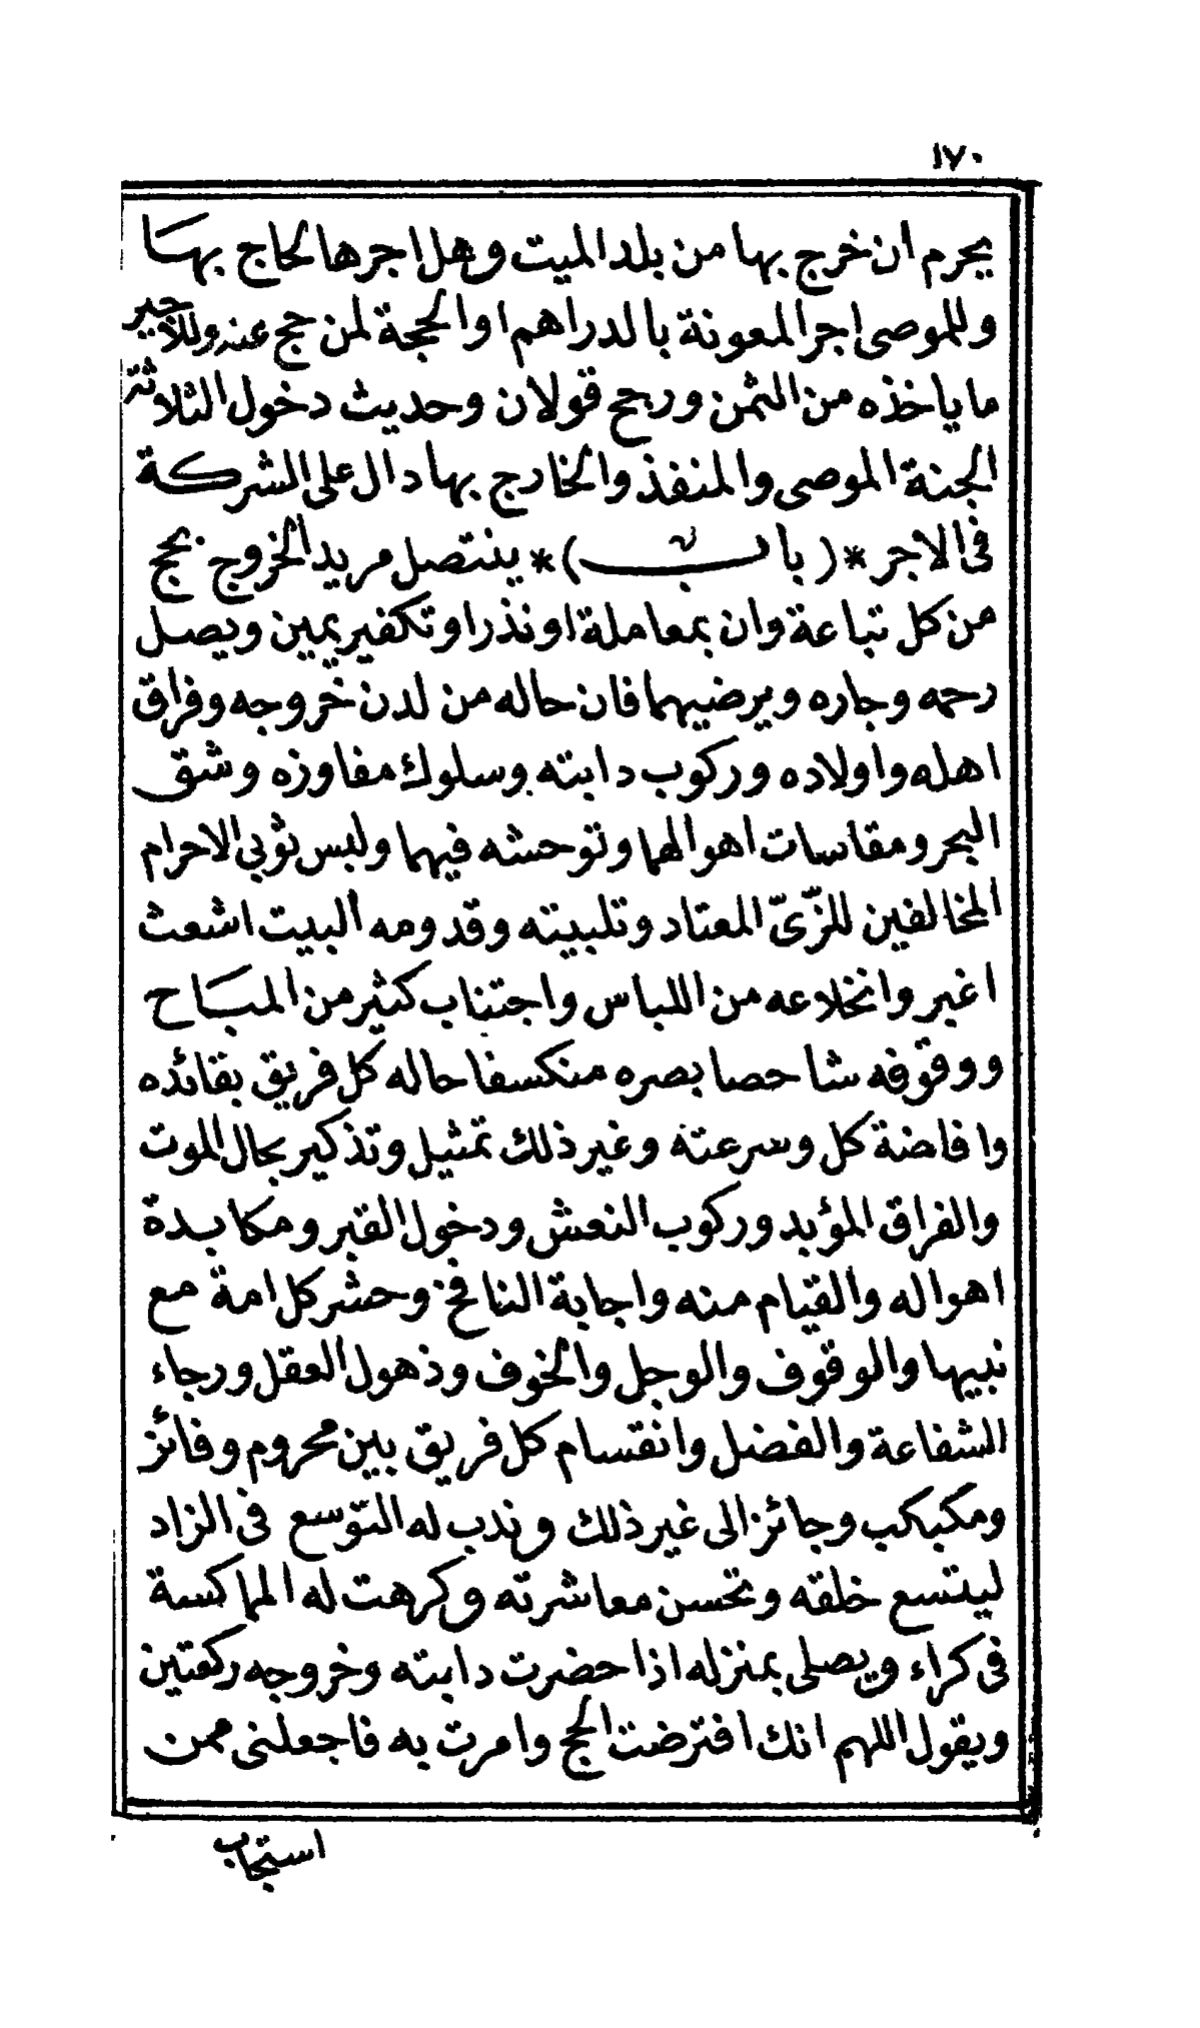 ١٧٠
يحرم ان خرج بها من بلد الميت وهل اجرها لحاج بها
وللموصى اجر المعونة بالدراهم او الحجة لمن حج عنه وللأجير
ما ياخذه من الثمن ورجح قولان وحديث دخول الثلاثة
الجنة الموصى والمنفذ والخارج بها دال على الشركة
فى الاجر *(باب)* ينتصل مريد الخروج بحج
من كل تباعة وان بمعاملة او نذر او تكفير يمين ويصل
رحمه وجاره ويرضيهما فان حاله من لدن خروجه وفراق
اهله واولاده وركوب دابته وسلوك مفاوزه وشق
البحر ومقاسات اهوالهما وتوحشه فيهما ولبس ثوبي الاحرام
المخالفين للزّىّ المعتاد وتلبيته وقدومه البيت اشعث
اغبر وانخلاعه من اللباس واجتناب كثير من المباح
ووقوفه شاخصا بصره منكسفا حاله كل فريق بقائده
وافاضة كل وسرعته وغير ذلك تمثيل وتذكير بحال الموت
والفراق المؤبد وركوب النعش ودخول القبر ومكابدة
اهواله والقيام منه واجابة النافخ وحشر كل امة مع
نبيها والوقوف والوجل والخوف وذهول العقل ورجاء
الشفاعة والفضل وانقسام كل فريق بين محروم وفائز
ومكبكب وجائز الى غير ذلك وندب له التوسع فى الزاد
ليتسع خلقه وتحسن معاشرته وكرهت له المماكسة
فى كراء ويصلى بمنزله اذا حضرت دابته وخروجه ركعتين
ويقول اللهم انك افترضت الحج وامرت به فاجعلنى ممن
استجاب